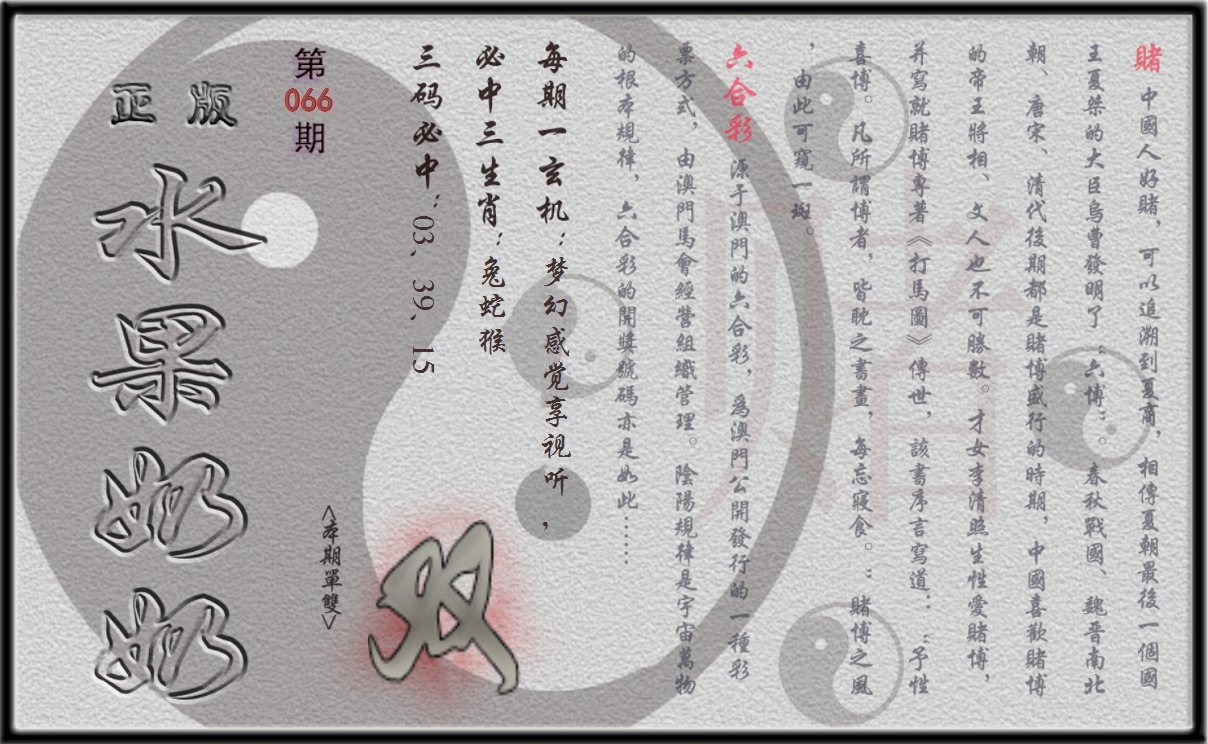 賭 中國人好賭，可以追溯到夏商，相傳夏朝最後一個國
王夏桀的大臣烏曹發明了“六博”。春秋戰國、魏晉南北
朝、唐宋、清代後期都是賭博盛行的時期，中國喜歡賭博
的帝王將相、文人也不可勝數。才女李清照生性愛賭博，
并寫就賭博專著《打馬圖》傳世，該書序言寫道：“予性
喜博。凡所謂博者，皆耽之書畫，每忘寢食。：賭博之風
，由此可窺一斑。
六合彩 源于澳門的六合彩，為澳門公開發行的一種彩
票方式，由澳門馬會經營組織管理。陰陽規律是宇宙萬物
的根本規律，六合彩的開獎號碼亦是如此……
每期一玄机：梦幻感觉享视听，
必中三生肖：兔蛇猴
三码必中：03、39、15
双
<本期單雙>
第066期
正版
水果奶奶
赌